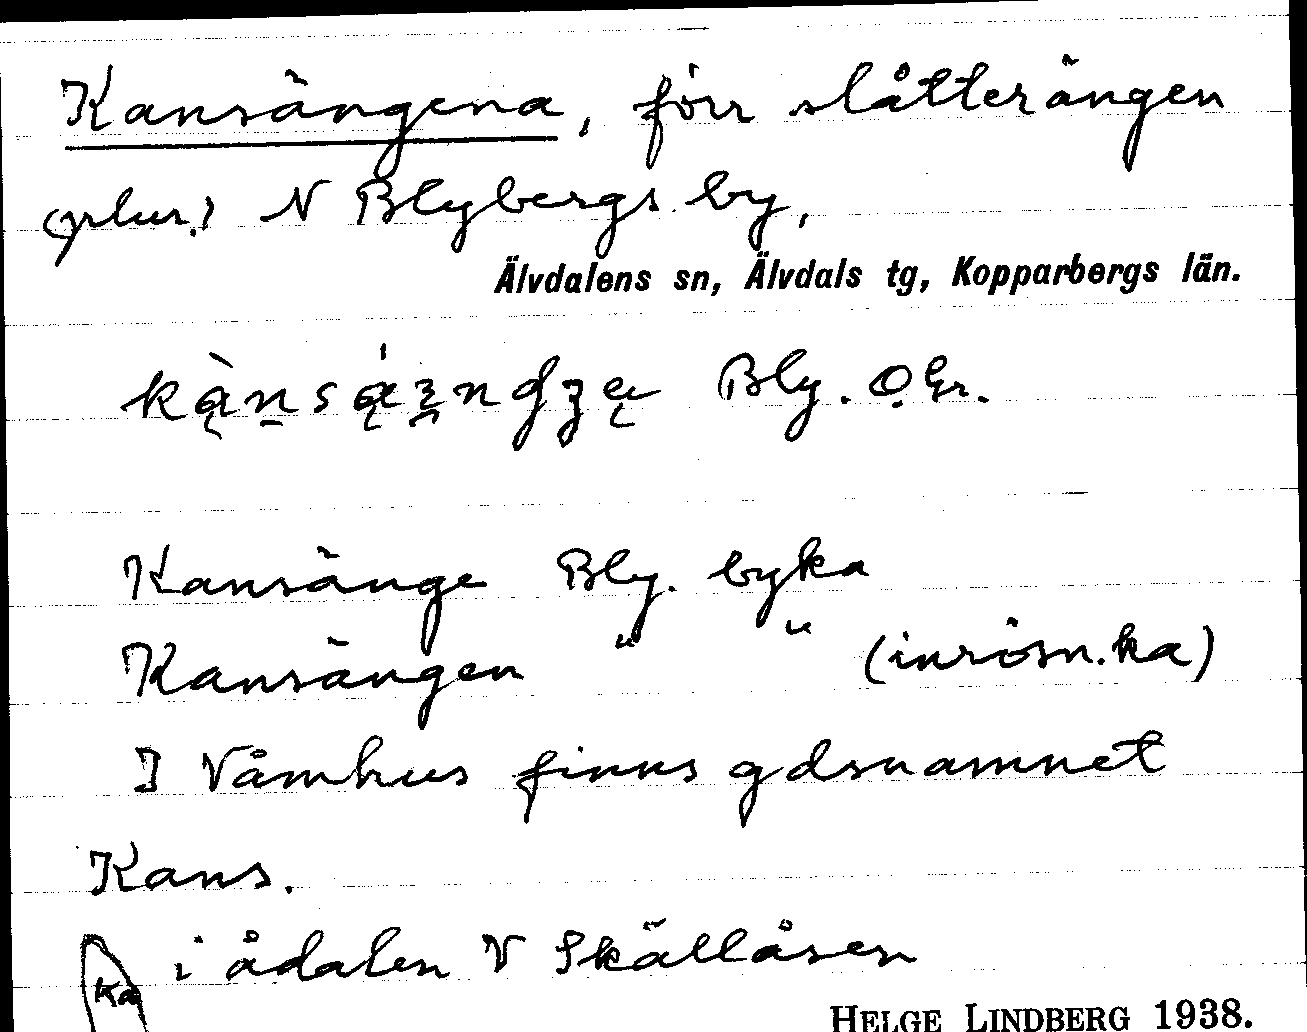 Kansängena, förr slåtterängen
(plur.) N Blybergs by,
Älvdalens sn, Älvdals tg, Kopparbergs län.
Bly.
Kansänge Bly. byka
Kansängen " " (inrösn.ka)
I Våmhus finns gdsnamnet
Kans.
i ådalen V Skällåsen
Ka
HELGE LINDBERG 1938.